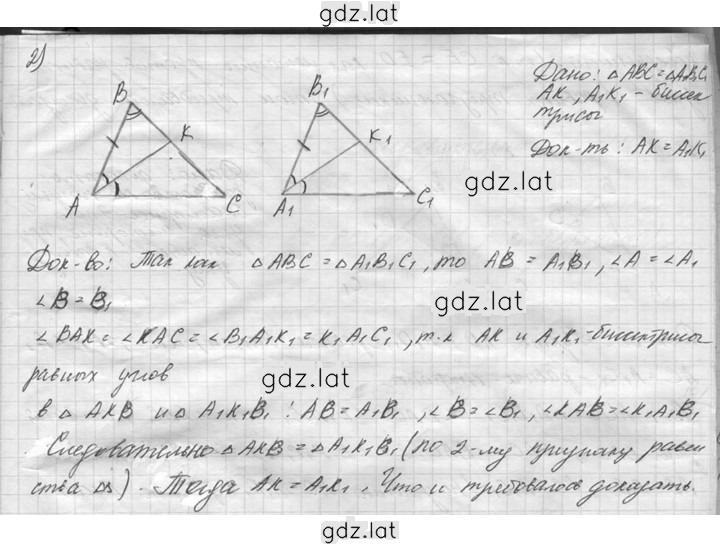 gdz.lat
2)
B
B₁
K
K₁
A
C
A₁
C₁
Дано: △ABC=△A₁B₁C₁
AK, A₁K₁ - биссек
трисы
Док-ть: AK=A₁K₁
gdz.lat
Док-во: Так как △ABC = △A₁B₁C₁, то AB = A₁B₁, ∠A = ∠A₁
∠B = B₁
gdz.lat
∠BAK = ∠KAC = ∠B₁A₁K₁ = K₁A₁C₁, т.к AK и A₁K₁-биссектрисы
равных углов
gdz.lat
в △AKB и △A₁K₁B₁: AB = A₁B₁, ∠B = ∠B₁, ∠KAB = ∠K₁A₁B₁
Следовательно △AKB = △A₁K₁B₁ (по 2-му признаку равен
ства △△). Тогда AK = A₁K₁. Что и требовалось доказать.
gdz.lat